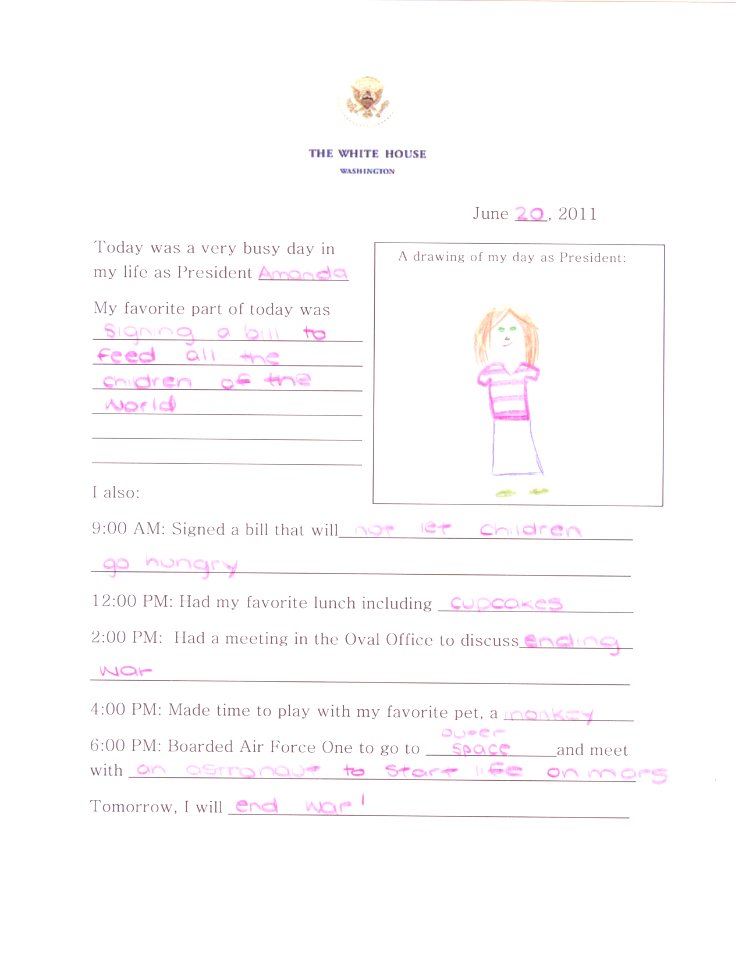 THE WHITE HOUSE
WASHINGTON
June 20, 2011
Today was a very busy day in
my life as President Amanda
My favorite part of today was
Signing a bill to
feed all the
children of the
world
A drawing of my day as President:
I also:
9:00 AM: Signed a bill that will not let children
go hungry
12:00 PM: Had my favorite lunch including cupcakes
2:00 PM: Had a meeting in the Oval Office to discuss ending
war
4:00 PM: Made time to play with my favorite pet, a monkey
outer
6:00 PM: Boarded Air Force One to go to space and meet
with an astronaut to start life on mars
Tomorrow, I will end war!